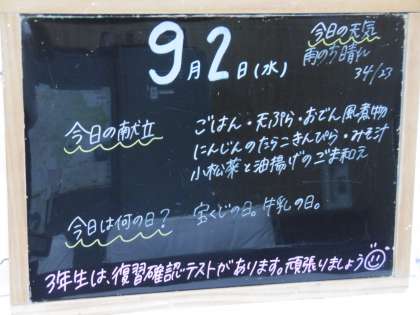 9月2日(水)
今日の天気
雨のち晴れ
34/23
今日の献立
ごはん・天ぷら・おでん風煮物
にんじんのたらこきんぴら・みそ汁
小松菜と油揚げのごま和え
今日は何の日?
宝くじの日。牛乳の日。
3年生は、復習確認テストがあります。頑張りましょう